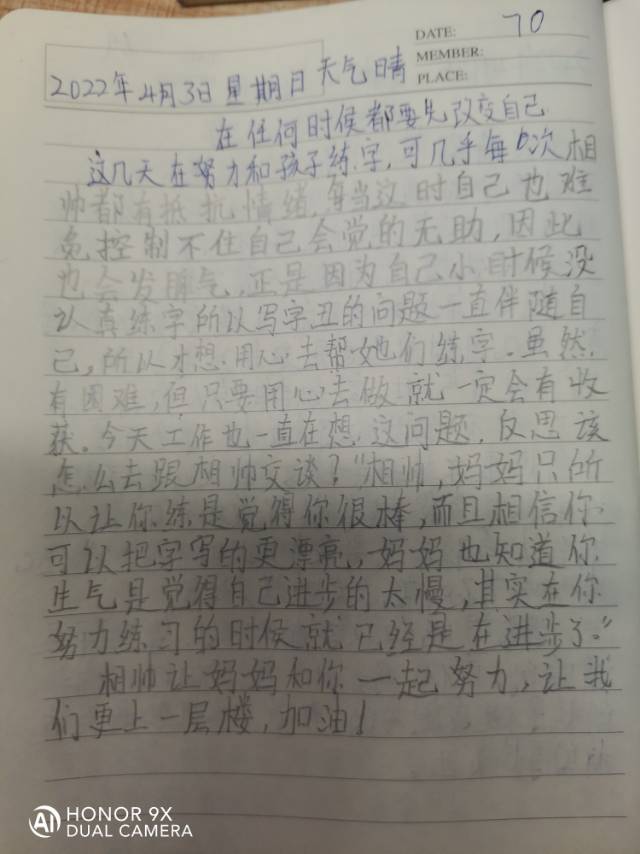 DATE: 70
MEMBER:
PLACE:
2022年4月3日 星期日 天气晴
在任何时候都要先改变自己
这几天在努力和孩子练字,可几乎每次相
帅都有抵抗情绪,每当这时自己也难
免控制不住自己会觉的无助,因此
也会发脾气,正是因为自己小时候没
认真练字所以写字丑的问题一直伴随自
己,所以才想用心去帮她们练字。虽然
有困难,但只要用心去做就一定会有收
获。今天工作也一直在想这问题,反思该
怎么去跟相帅交谈?“相帅,妈妈只所
以让你练是觉得你很棒,而且相信你
可以把字写的更漂亮,妈妈也知道你
生气是觉得自己进步的太慢,其实在你
努力练习的时候就已经是在进步了。”
相帅让妈妈和你一起努力,让我
们更上一层楼,加油!
HONOR 9X
DUAL CAMERA